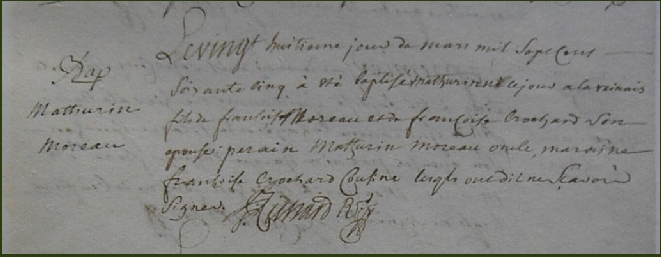 Bap
Mathurin
Moreau
Le vingt huitieme jour de mars mil sept cens
soixante cinq à été baptisé mathurin né le jour a la
fils de françois Moreau et de françoise Crochard son
epouse parain Mathurin moreau oncle, maraine
françoise Crochard Cousine lesqls ont dit ne scavoir
signer